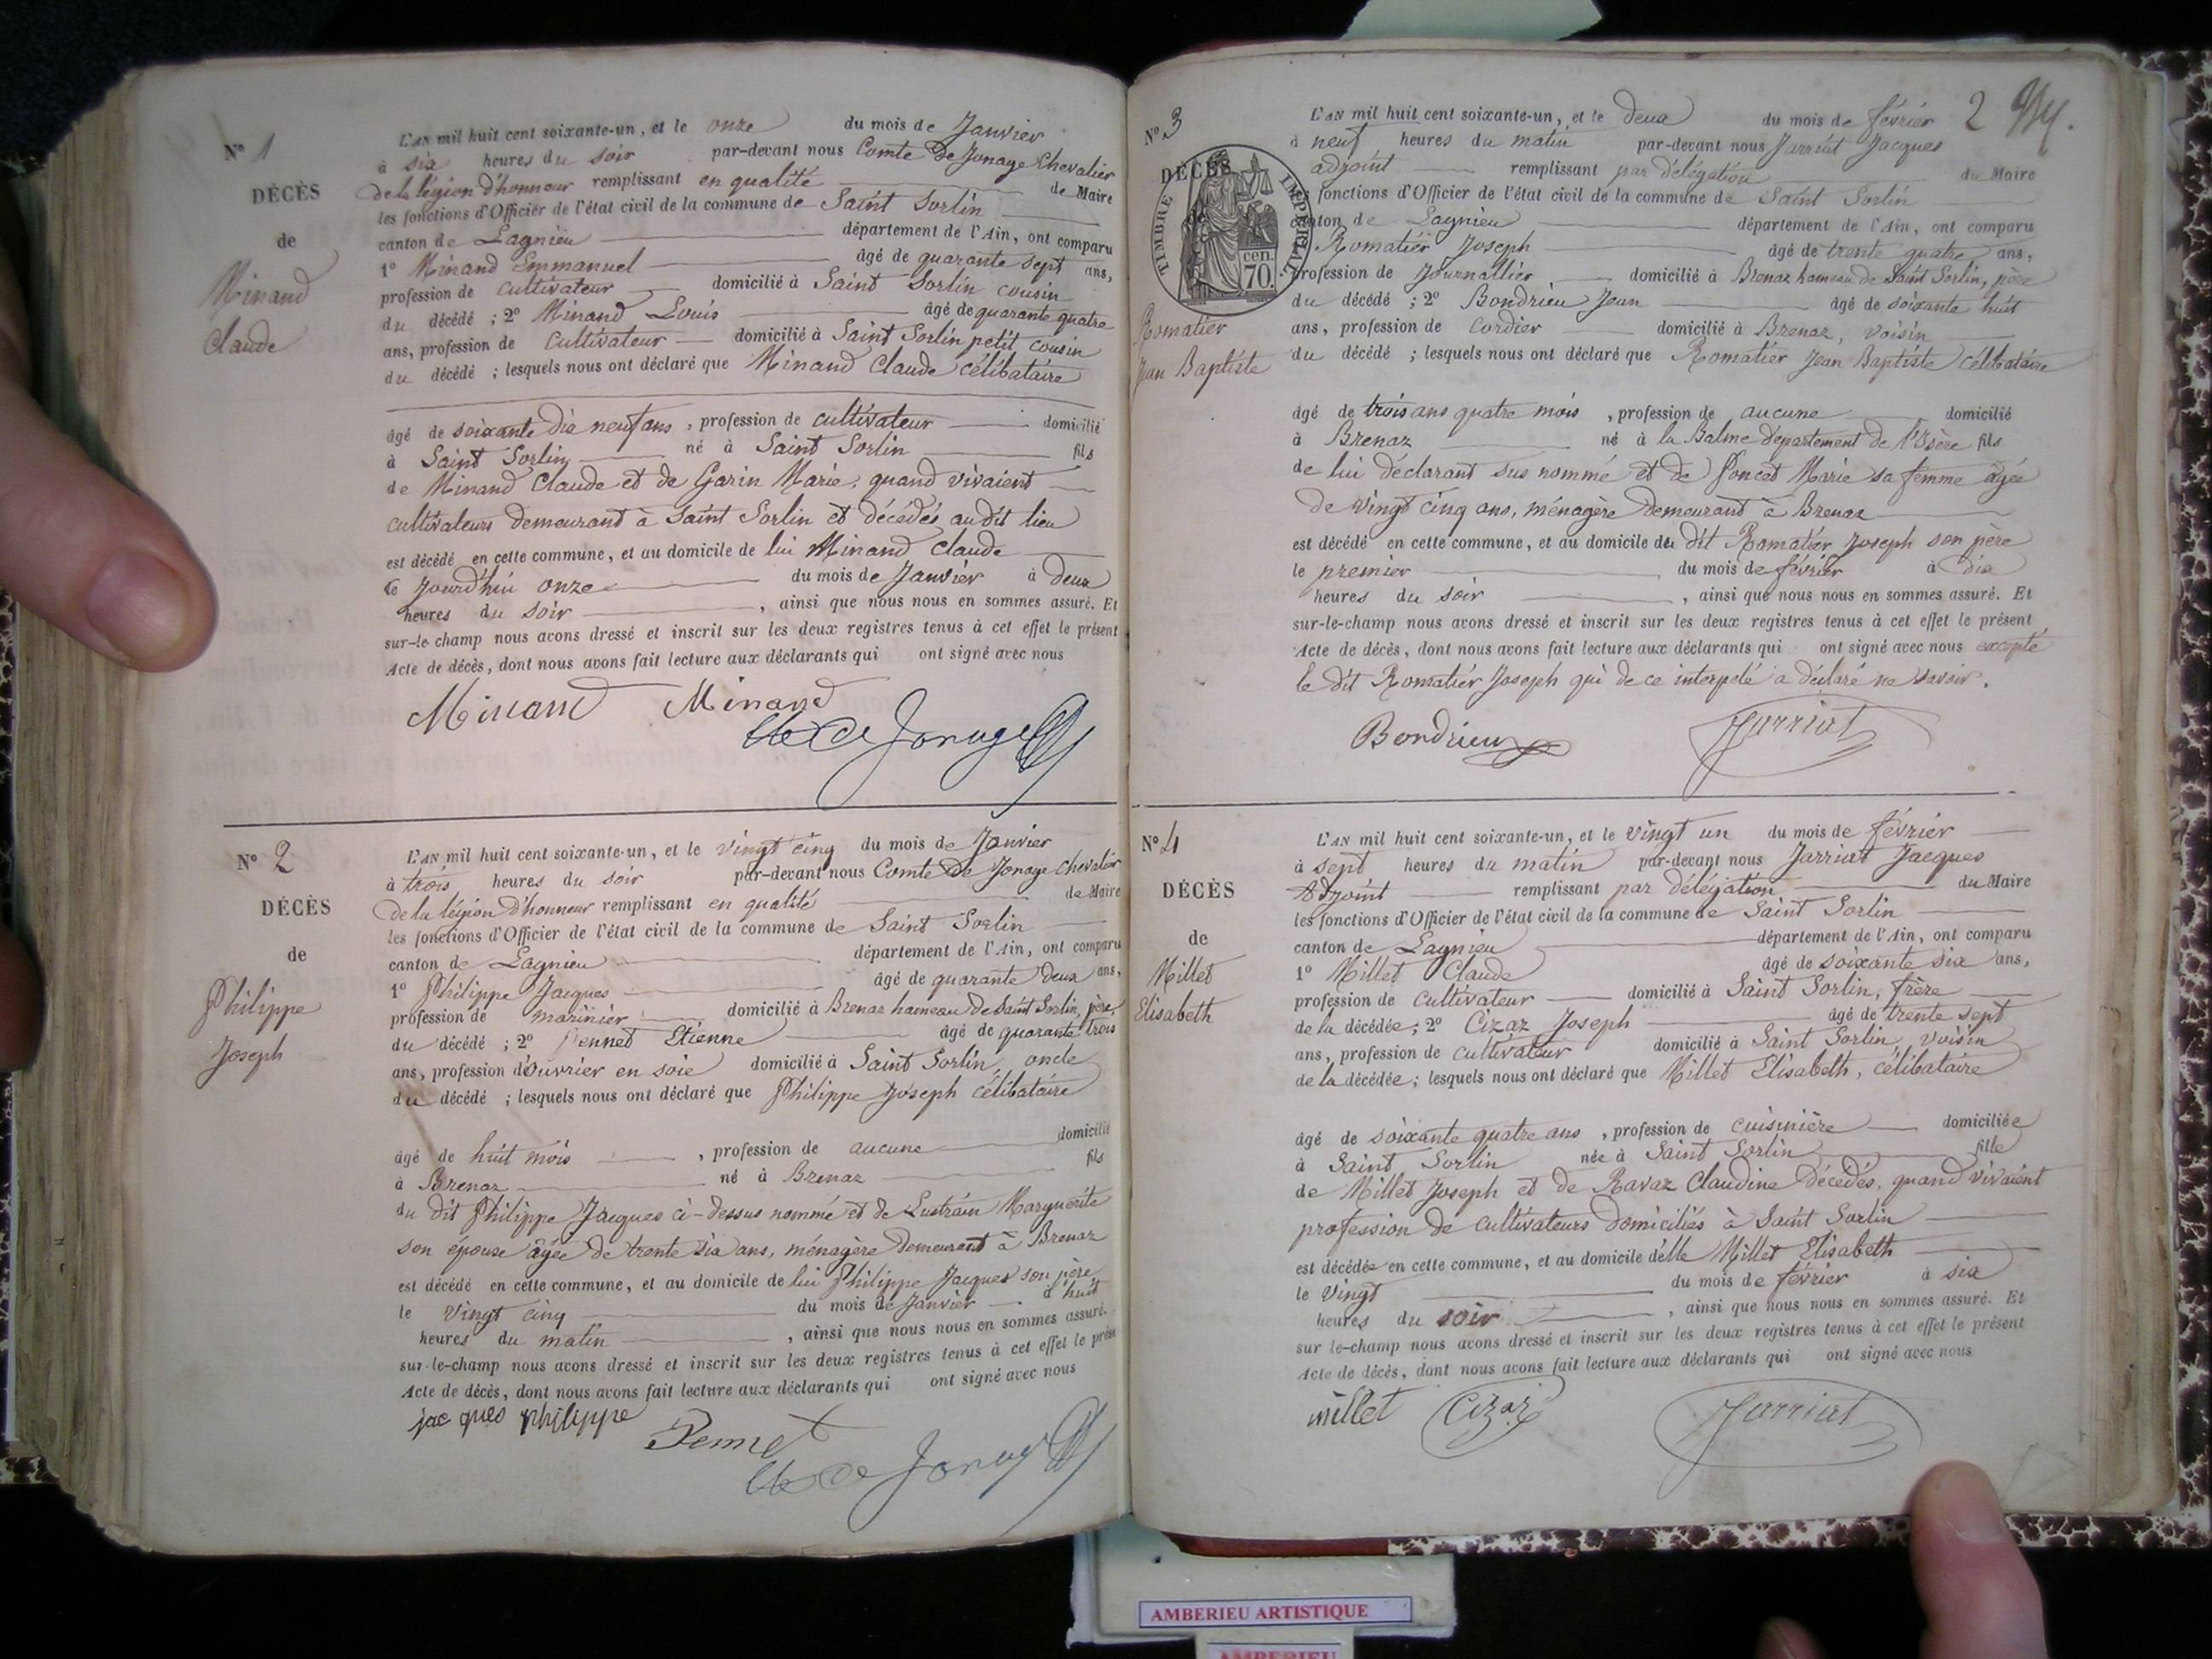 N° 1
DÉCÈS
de
Minand
Claude
L'AN mil huit cent soixante-un, et le onze du mois de Janvier
à six heures du soir par-devant nous Comte de Jonage Chevalier
de la légion d'honneur remplissant en qualité de Maire
les fonctions d'Officier de l'état civil de la commune de Saint Sorlin
canton de Lagnieu département de l'Ain, ont comparu
1° Minand Emmanuel âgé de quarante sept ans,
profession de cultivateur domicilié à Saint Sorlin cousin
du décédé ; 2° Minand Louis âgé de quarante quatre
ans, profession de cultivateur domicilié à Saint Sorlin petit cousin
du décédé ; lesquels nous ont déclaré que Minand Claude célibataire
âgé de soixante dix neuf ans, profession de cultivateur domicilié
à Saint Sorlin né à Saint Sorlin fils
de Minand Claude et de Garin Marie, quand vivaient
cultivateurs demeurant à Saint Sorlin et décédés audit lieu
est décédé en cette commune, et au domicile de lui Minand Claude
ce jourd'hui onze du mois de Janvier à deux
heures du soir, ainsi que nous nous en sommes assuré. Et
sur-le-champ nous avons dressé et inscrit sur les deux registres tenus à cet effet le présent
Acte de décès, dont nous avons fait lecture aux déclarants qui ont signé avec nous
Minand Minand
Cte de Jonage
N° 2
DÉCÈS
de
Philippe
Joseph
L'AN mil huit cent soixante-un, et le vingt cinq du mois de Janvier
à trois heures du soir par-devant nous Comte de Jonage Chevalier
de la légion d'honneur remplissant en qualité de Maire
les fonctions d'Officier de l'état civil de la commune de Saint Sorlin
canton de Lagnieu département de l'Ain, ont comparu
1° Philippe Jacques âgé de quarante deux ans,
profession de marinier domicilié à Brenaz hameau de Saint Sorlin, père,
du décédé ; 2° Pennet Etienne âgé de quarante trois
ans, profession d'ouvrier en soie domicilié à Saint Sorlin, oncle
du décédé ; lesquels nous ont déclaré que Philippe Joseph célibataire
âgé de huit mois, profession de aucune domicilié
à Brenaz né à Brenaz fils
du dit Philippe Jacques ci-dessus nommé et de Lustrain Marguerite
son épouse âgée de trente six ans, ménagère demeurant à Brenaz
est décédé en cette commune, et au domicile de lui Philippe Jacques son père
le vingt cinq du mois de Janvier à huit
heures du matin, ainsi que nous nous en sommes assuré.
sur-le-champ nous avons dressé et inscrit sur les deux registres tenus à cet effet le prése
Acte de décès, dont nous avons fait lecture aux déclarants qui ont signé avec nous
jacques philippe
Pennet
Cte de Jonage
2
N° 3
DÉCÈS
TIMBRE IMPERIAL
70 cen.
Romatier
Jean Baptiste
L'AN mil huit cent soixante-un, et le deux du mois de février
à neuf heures du matin par-devant nous Jarriat Jacques
adjoint remplissant par délégation du Maire
fonctions d'Officier de l'état civil de la commune de Saint Sorlin
canton de Lagnieu département de l'Ain, ont comparu
Romatier Joseph âgé de trente quatre ans,
profession de Journallier domicilié à Brenaz hameau de Saint Sorlin, père
du décédé ; 2° Bondrieu Jean âgé de soixante huit
ans, profession de cordier domicilié à Brenaz, voisin
du décédé ; lesquels nous ont déclaré que Romatier Jean Baptiste célibataire
âgé de trois ans quatre mois, profession de aucune domicilié
à Brenaz né à la Balme département de l'Isère fils
de lui déclarant sus nommé et de Poncet Marie sa femme âgée
de vingt cinq ans, ménagère demeurant à Brenaz
est décédé en cette commune, et au domicile du dit Romatier Joseph son père
le premier du mois de février à dix
heures du soir, ainsi que nous nous en sommes assuré. Et
sur-le-champ nous avons dressé et inscrit sur les deux registres tenus à cet effet le présent
Acte de décès, dont nous avons fait lecture aux déclarants qui ont signé avec nous excepté
le dit Romatier Joseph qui de ce interpelé a déclaré ne savoir.
Bondrieu Jarriat
N° 4
DÉCÈS
de
Millet
Elisabeth
L'AN mil huit cent soixante-un, et le vingt un du mois de février
à sept heures du matin par-devant nous Jarriat Jacques
Adjoint remplissant par délégation du Maire
les fonctions d'Officier de l'état civil de la commune de Saint Sorlin
canton de Lagnieu département de l'Ain, ont comparu
1° Millet Claude âgé de soixante six ans,
profession de cultivateur domicilié à Saint Sorlin, frère
de la décédée ; 2° Cizaz Joseph âgé de trente sept
ans, profession de cultivateur domicilié à Saint Sorlin, voisin
de la décédée ; lesquels nous ont déclaré que Millet Elisabeth, célibataire
âgé de soixante quatre ans, profession de cuisinière domiciliée
à Saint Sorlin née à Saint Sorlin fille
de Millet Joseph et de Ravaz Claudine décédés, quand vivaient
profession de cultivateurs domiciliés à Saint Sorlin
est décédée en cette commune, et au domicile d'elle Millet Elisabeth
le vingt du mois de février à six
heures du soir, ainsi que nous nous en sommes assuré. Et
sur le-champ nous avons dressé et inscrit sur les deux registres tenus à cet effet le présent
Acte de décès, dont nous avons fait lecture aux déclarants qui ont signé avec nous
millet Cizaz Jarriat
AMBERIEU ARTISTIQUE
AMBERIEU